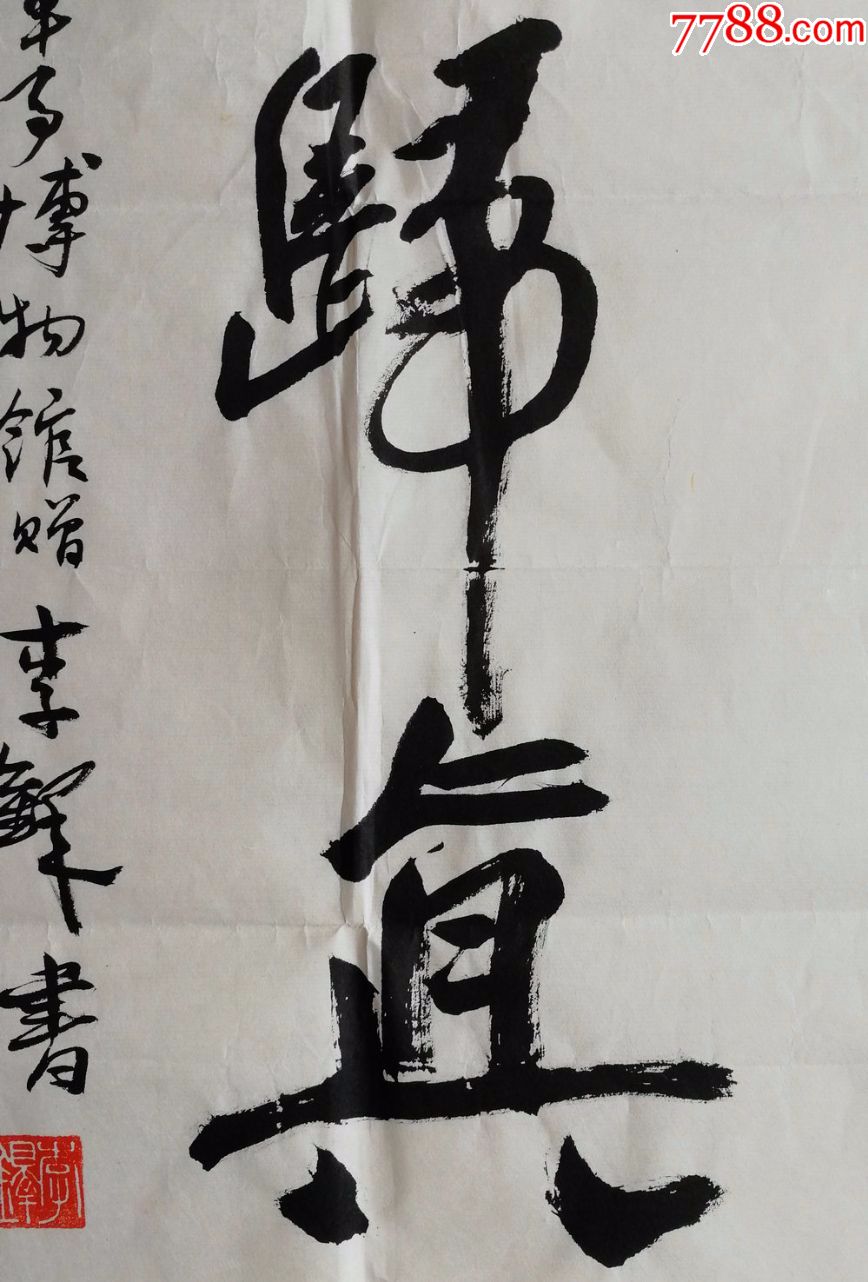 7788.com
歸真
軍事博物館贈
李鐸書
李鐸